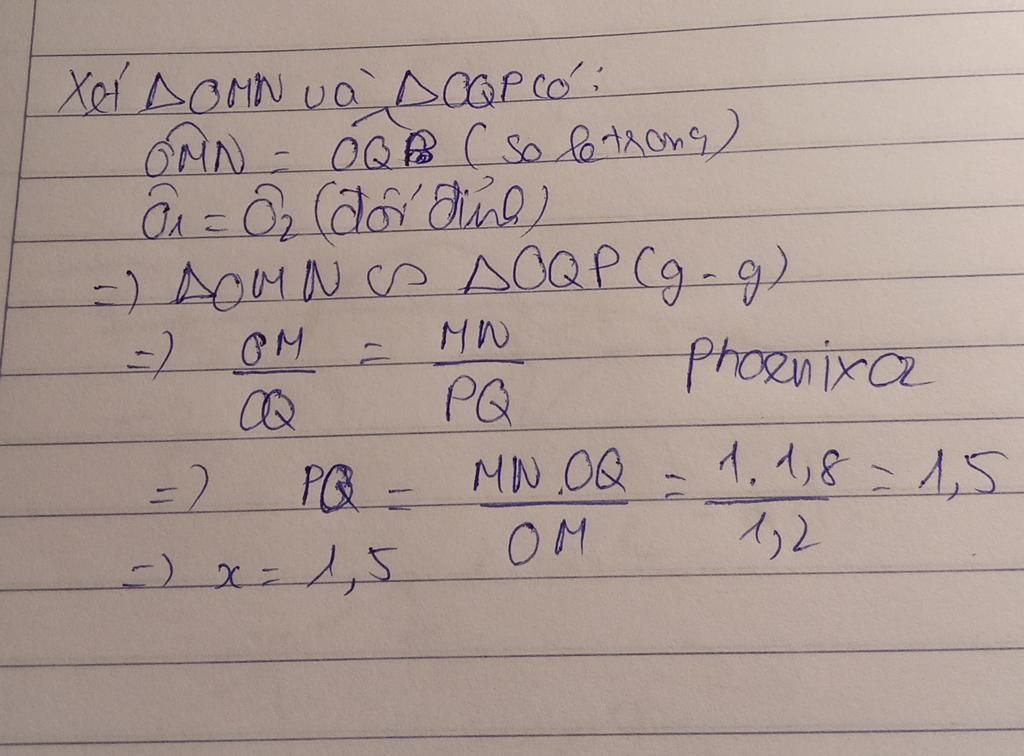 Xét ΔOMN và ΔOQP có:
OMN = OQP (so le trong)
Ô1 = Ô2 (đối đỉnh)
=> ΔOMN ∽ ΔOQP (g-g)
=> OM/OQ = MN/PQ
Phoenixa
=> PQ = MN.OQ/OM = 1.1,8/1,2 = 1,5
=> x = 1,5